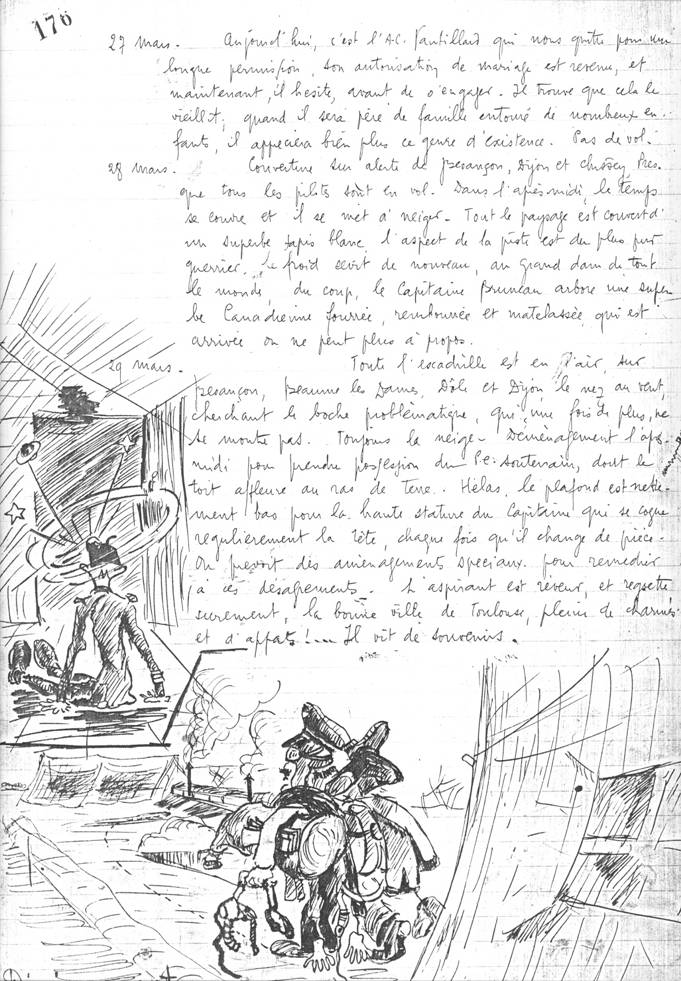 176
27 mars. Aujourd'hui, c'est l'A.C. Vautillard qui nous quitte pour une
longue permission, son autorisation de mariage est revenue, et
maintenant, il hésite, avant de s'engager. Il trouve que cela le
vieillit, quand il sera père de famille entouré de nombreux en-
fants, il appeciera bien plus ce genre d'existence. Pas de vol.
28 mars. Couverture sur alerte de Besançon, Dijon et Chissey Pres
que tous les pilots sont en vol. Dans l'après-midi, le temps
se couvre et il se met à neiger. Tout le paysage est couvert d'
un superbe tapis blanc l'aspect de la piste est du plus pur
guerrier. Le froid sévit de nouveau, au grand dam de tout
le monde, du coup, le Capitaine Bruneau arbore une super
be Canadienne fourrée, rembourrée et matelassée qui est
arrivée on ne peut plus à propos.
29 mars. Toute l'escadrille est en l'air, sur
Besançon, Beaume les Dames, Dôle et Dijon le nez au vent,
cherchant le boche problématique, qui, une fois de plus, ne
se montre pas. Toujours la neige - Déménagement l'après
midi pour prendre possession du P.C. souterrain, dont le
toit affleure au ras de Terre. Hélas, le plafond est nette-
ment bas pour la haute stature du Capitaine qui se cogne
regulièrement la Tête, chaque fois qu'il change de pièce.
On prévoit des aménagements speciaux pour remedier
à ces désagréments. L'aspirant est rêveur, et regrette
surement, la bonne ville de Toulouse, pleine de charmes
et d'appats!... Il vit de souvenirs.